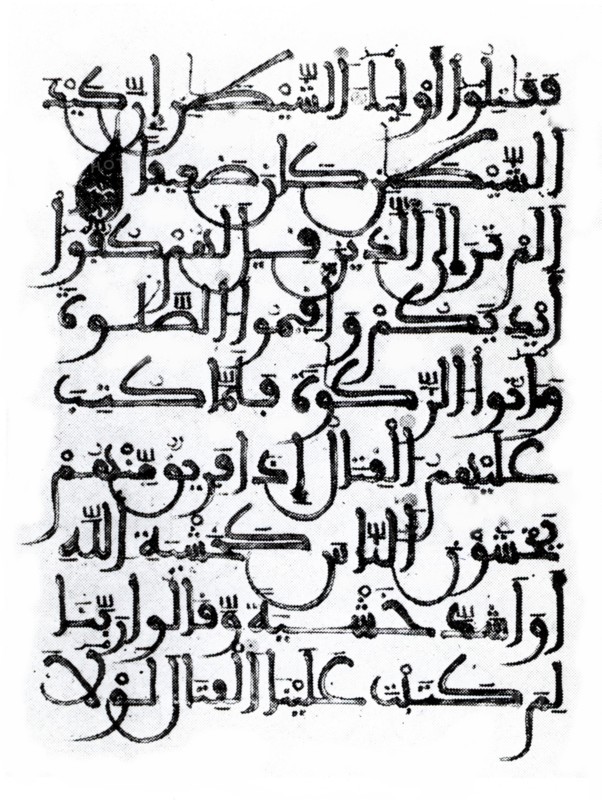 فَقَٰتِلُوا أَوْلِيَاءَ الشَّيْطَٰنِ إِنَّ كَيْدَ
الشَّيْطَٰنِ كَانَ ضَعِيفًا
أَلَمْ تَرَ إِلَى الَّذِينَ قِيلَ لَهُمْ كُفُّوا
أَيْدِيَكُمْ وَأَقِيمُوا الصَّلَوٰةَ
وَءَاتُوا الزَّكَوٰةَ فَلَمَّا كُتِبَ
عَلَيْهِمُ الْقِتَالُ إِذَا فَرِيقٌ مِّنْهُمْ
يَخْشَوْنَ النَّاسَ كَخَشْيَةِ اللَّهِ
أَوْ أَشَدَّ خَشْيَةً وَّقَالُوا رَبَّنَا
لِمَ كَتَبْتَ عَلَيْنَا الْقِتَالَ لَوْلَا